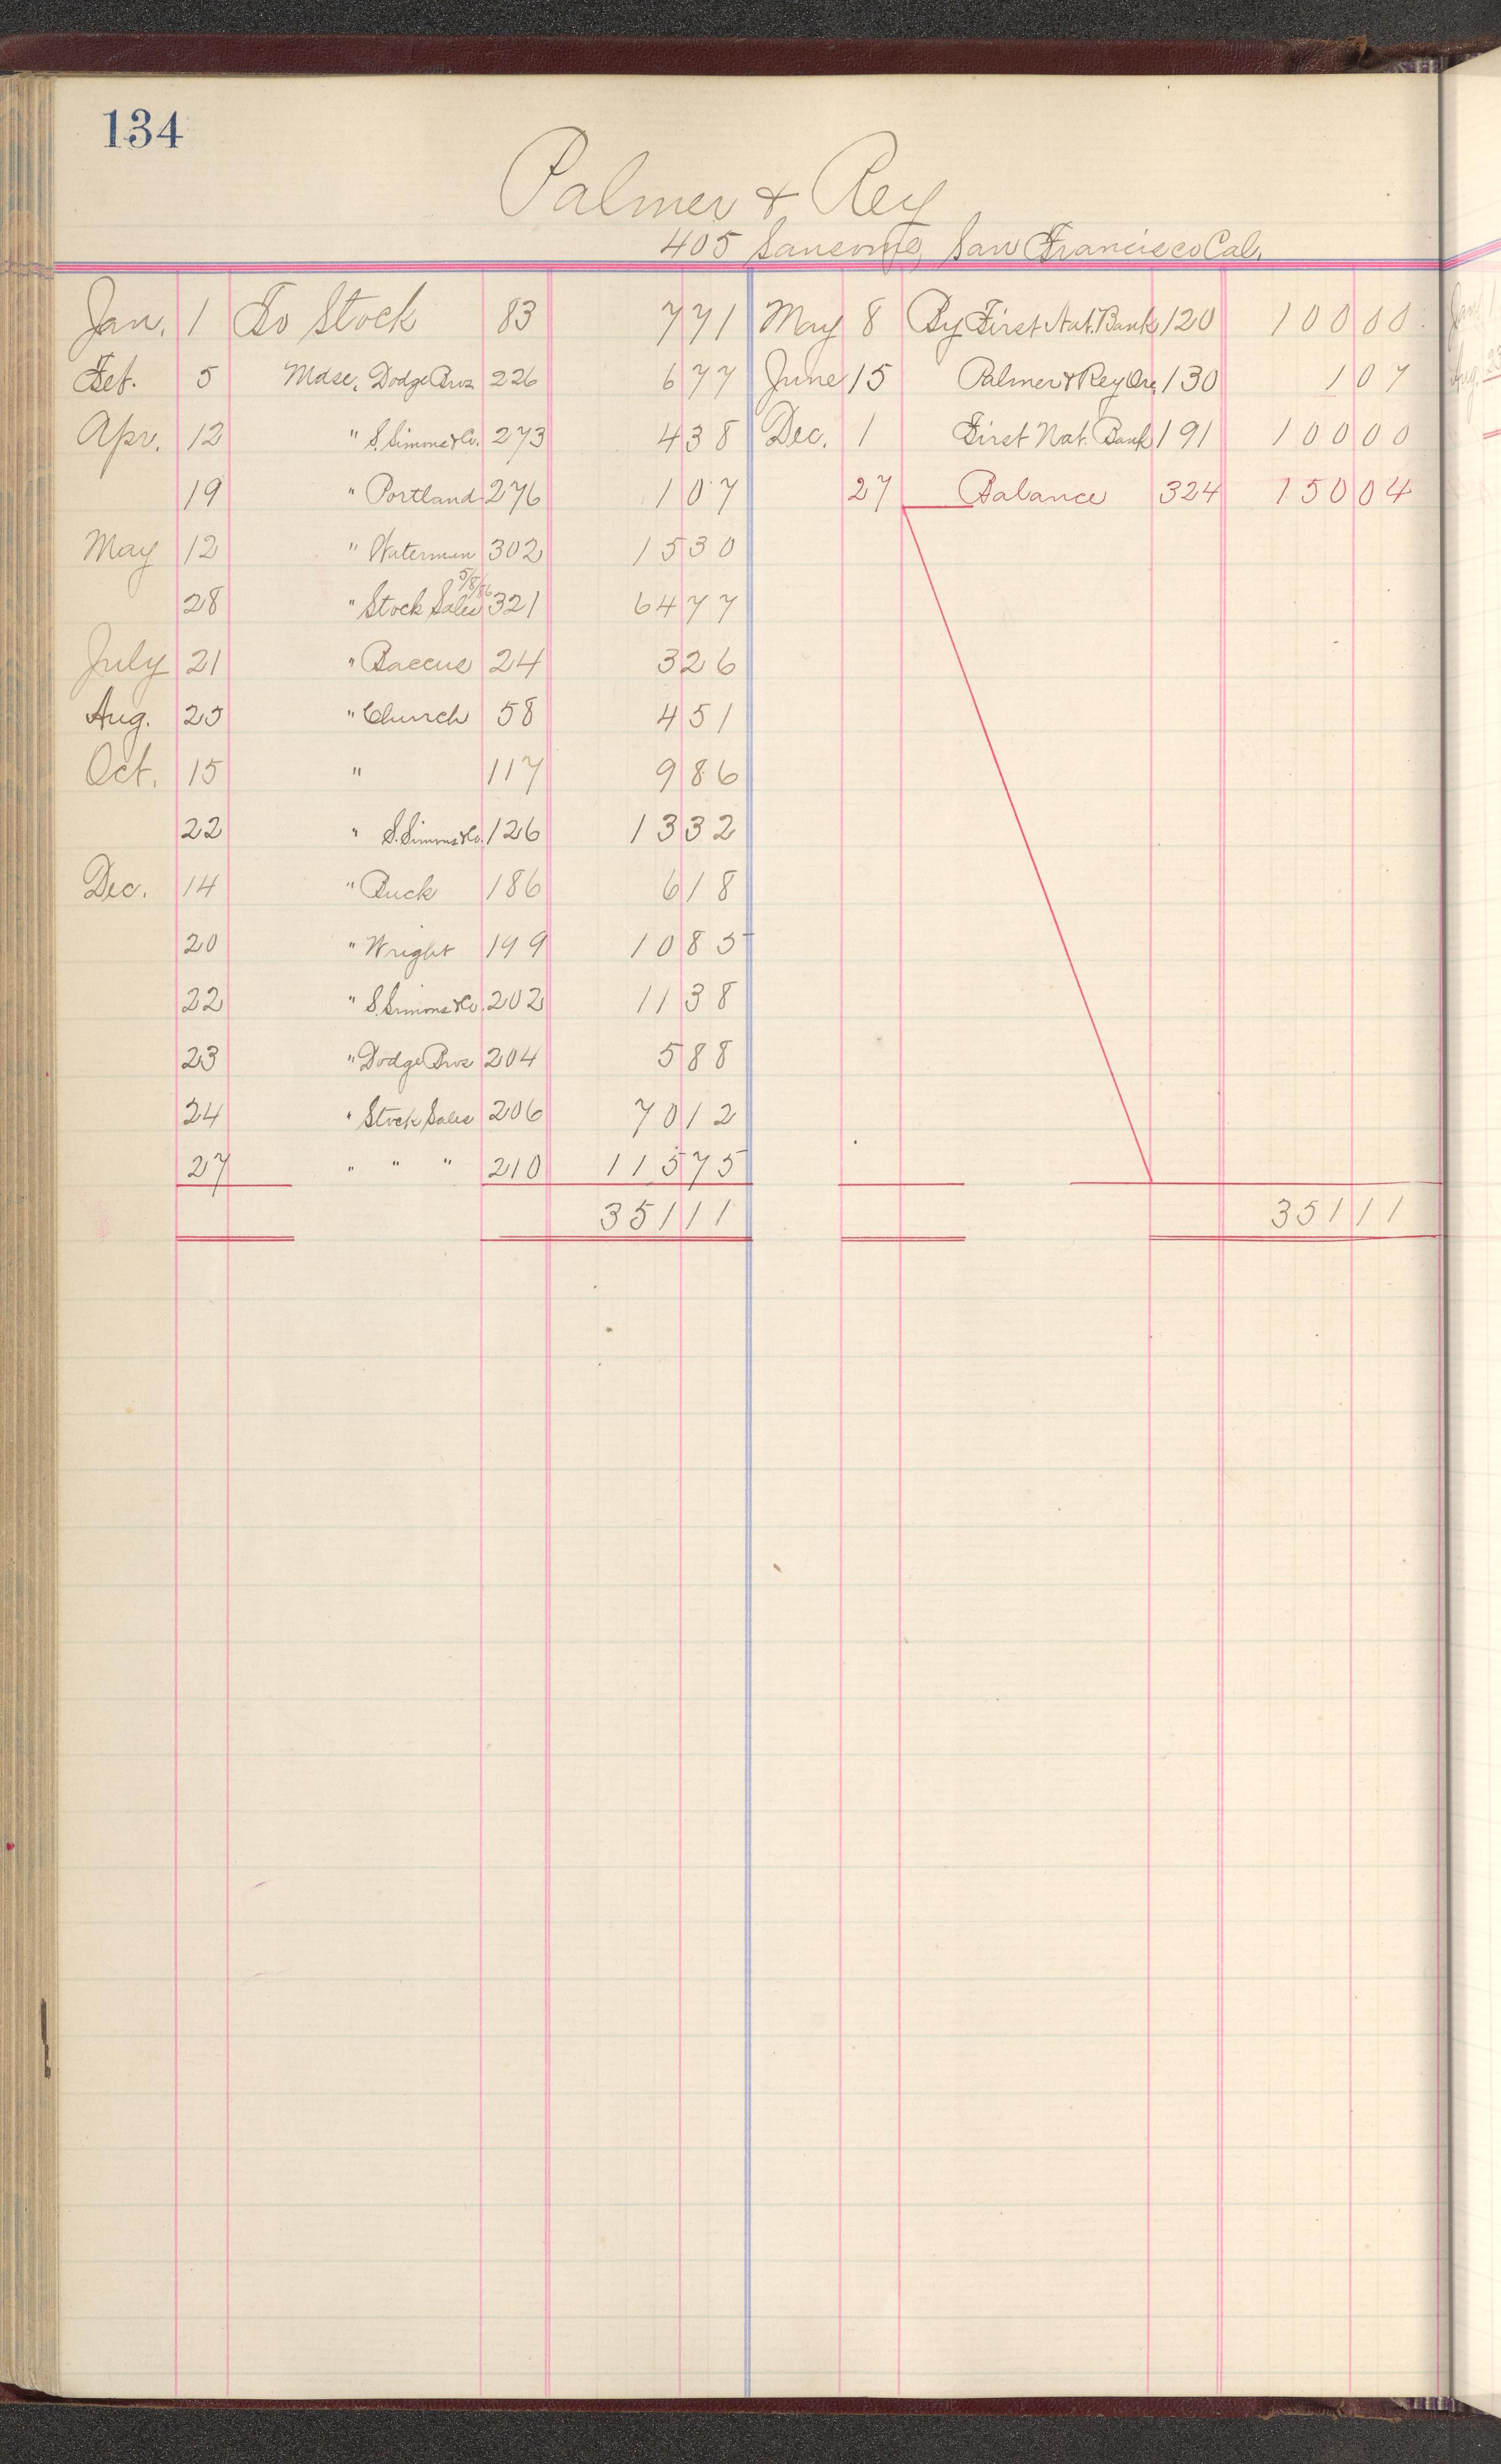 134
Palmer & Rey
405 Sansome, San Francisco Cal.
Jan. 1 To Stock 83 7 71 May 8 By First Nat. Bank 120 100 00
Feb. 5 Mdse. Dodge Bros 226 6 77 June 15 Palmer & Rey Ore. 130 1 07
Apr. 12 " S. Simms & Co. 273 4 38 Dec. 1 First Nat. Bank 191 100 00
19 " Portland 276 1 07 27 Balance 324 150 04
May 12 " Waterman 302 15 30
28 " Stock Sales 5/8/86 321 64 77
July 21 " Baccus 24 3 26
Aug. 25 " Church 58 4 51
Oct. 15 " 117 9 86
22 " S. Simms & Co. 126 13 32
Dec. 14 " Buck 186 6 18
20 " Wright 199 10 85
22 " S. Simms & Co. 202 11 38
23 " Dodge Bros 204 5 88
24 " Stock Sales 206 70 12
27 " " " 210 115 75
351 11 351 11